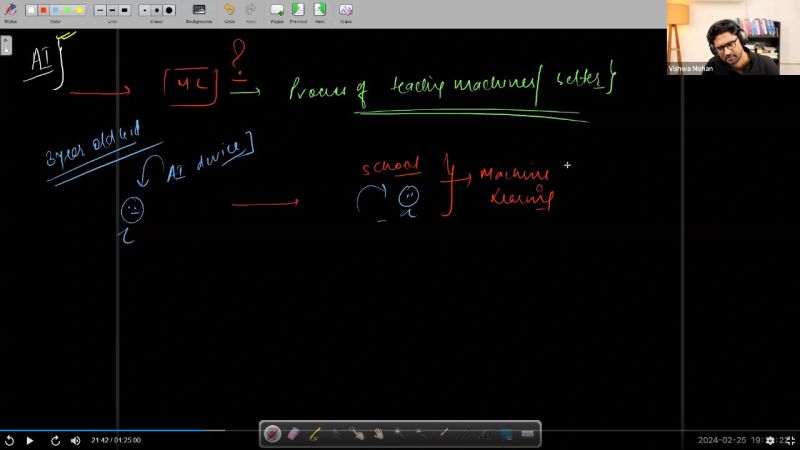 Status
Color
Line
Eraser
Backgrounds
Undo
Redo
Pages
Previous
Next
Erase
Vishwa Mohan
AI
ML ?
Process of teaching machines/
3 year old kid
AI device
school
Machine
Learning
21:42 / 01:25:00
2024-02-25